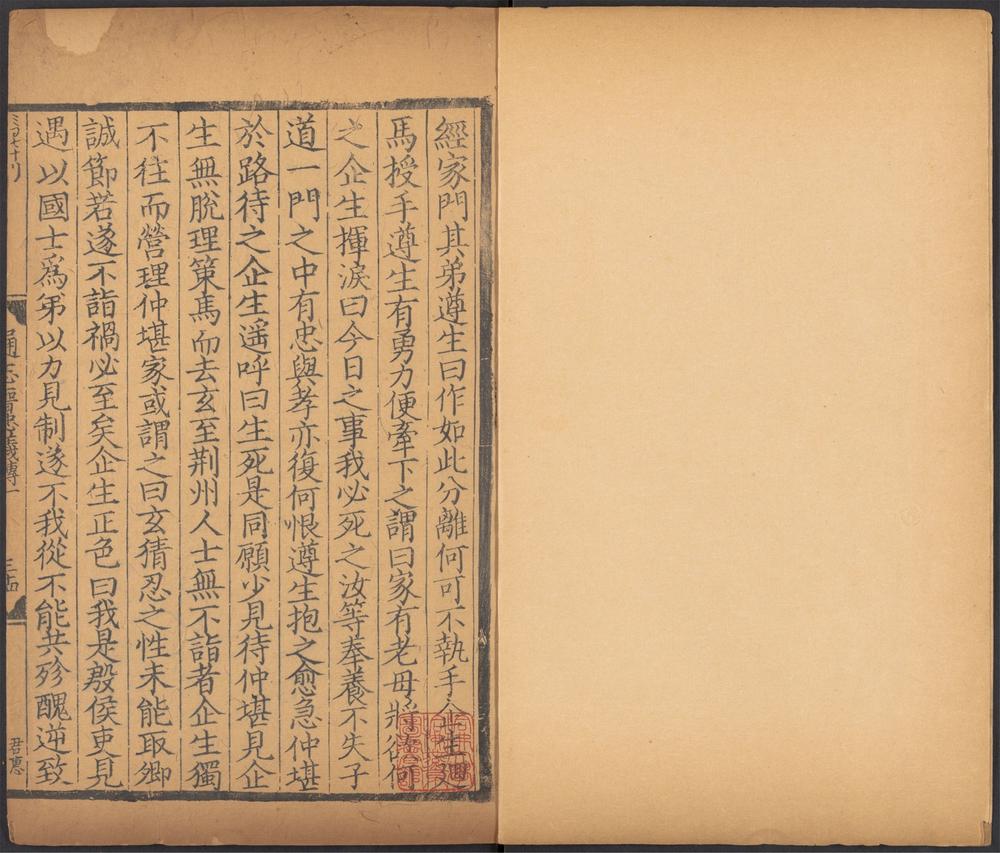 經家門其弟遵生曰作如此分離何可不執手企生迴
馬授手遵生有勇力便牽下之謂曰家有老母將欲何
之企生揮淚曰今日之事我必死之汝等奉養不失子
道一門之中有忠與孝亦復何恨遵生抱之愈急仲堪
於路待之企生遥呼曰生死是同願少見待仲堪見企
生無脫理策馬而去玄至荆州人士無不詣者企生獨
不往而營理仲堪家或謂之曰玄猜忍之性未能取卿
誠節若遂不詣禍必至矣企生正色曰我是殷侯吏見
遇以國士爲弟以力見制遂不我從不能共殄醜逆致
通志晉忠義傳一
君惠